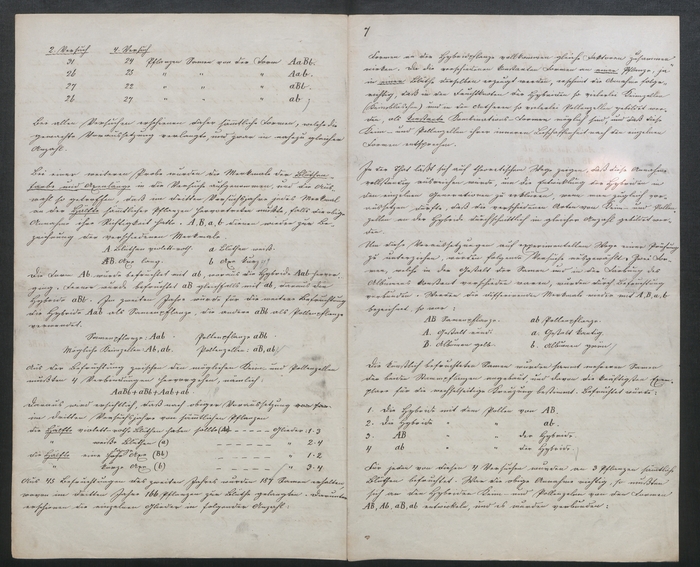 2. Versuch 4. Versuch
31 24 Pflanzen Samen von der Form AaBb.
26 25 " " " Aab.
27 22 " " " aBb.
26 27 " " " ab.
Bei allen Versuchen erschienen daher sämmtliche Formen, welche die
gemachte Voraussetzung verlangte, und zwar in nahezu gleicher
Anzahl.
Bei einer weiteren Probe wurden die Merkmale der Blüthen-
farbe und Axenlänge in die Versuche aufgenommen, und die Aus-
wahl so getroffen, daß im dritten Versuchsjahre jedes Merkmal
an der Hälfte sämmtlicher Pflanzen hervortreten mußte, falls die obige
Annahme ihre Richtigkeit hatte. A, B, a, b dienen wieder zur Be-
zeichnung der verschiedenen Merkmale
A Blüthen violett-roth. a Blüthen weiß.
B Axe lang. b Axe kurz.
Die Form Ab wurde befruchtet mit ab, woraus die Hybride Aab hervor-
ging. Ferner wurde befruchtet aB gleichfalls mit ab, woraus die
Hybride aBb. Im zweiten Jahre wurde für die weitere Befruchtung
die Hybride Aab als Samenpflanze, die andere aBb als Pollenpflanze
verwendet.
Samenpflanze: Aab. Pollenpflanze aBb.
Mögliche Keimzellen Ab, ab. Pollenzellen: aB, ab.
Aus der Befruchtung zwischen den möglichen Keim- und Pollenzellen
mußten 4 Verbindungen hervorgehen, nämlich:
AaBb + aBb + Aab + ab
Daraus wird ersichtlich, daß nach obiger Voraussetzung
im dritten Versuchsjahre von sämmtlichen Pflanzen
die Hälfte violett-roth Blüthen haben sollte (Aa) Glieder 1·3
" " weiße Blüthen (a) " 2·4
die Hälfte eine lange Axe (Bb) " 1·2
" " kurze Axe (b) " 3·4
Aus 45 Befruchtungen des zweiten Jahres wurden 187 Samen erhalten,
wovon im dritten Jahre 166 Pflanzen zur Blüthe gelangten. Darunter
erschienen die einzelnen Glieder in folgender Anzahl:
7
Formen an der Hybridpflanze vollkommen gleiche Faktoren zusammen
wirken. Da die verschiedenen constanten Formen an einer Pflanze, ja
in einer Blüthe derselben erzeugt werden, erscheint die Annahme folge-
richtig, daß in den Fruchtknoten der Hybriden so vielerlei Keimzellen
(Keimbläschen) und in den Antheren so vielerlei Pollenzellen gebildet wer-
den, als constante Combinations-Formen möglich sind, und daß diese
Keim- und Pollenzellen ihrer inneren Beschaffenheit nach den einzelnen
Formen entsprechen.
In der That läßt sich auf theoretischem Wege zeigen, daß diese Annahme
vollständig ausreichen würde, um die Entwicklung der Hybriden in
den einzelnen Generationen zu erklären, wenn man zugleich vor-
aussetzen dürfte, daß die verschiedenen Arten von Keim- und Pollen-
zellen an der Hybride durchschnittlich in gleicher Anzahl gebildet wer-
den.
Um diese Voraussetzungen auf experimentellem Wege einer Prüfung
zu unterziehen, wurden folgende Versuche ausgewählt: Zwei For-
men, welche in der Gestalt der Samen und in der Färbung des
Albumens constant verschieden waren, wurden durch Befruchtung
verbunden. Werden die differirenden Merkmale wieder mit A, B, a, b
bezeichnet, so war:
AB Samenpflanze. ab Pollenpflanze.
A. Gestalt rund. a. Gestalt kantig.
B. Albumen gelb. b. Albumen grün.
Die künstlich befruchteten Samen wurden sammt mehreren Samen
der beiden Stammpflanzen angebaut, und davon die kräftigsten Exem-
plare für die wechselseitige Kreuzung bestimmt. Befruchtet wurde:
1. Die Hybride mit dem Pollen von AB.
2. Die Hybride " " ab.
3. AB " " der Hybride.
4. ab " " der Hybride.
Für jeden von diesen 4 Versuchen wurden an 3 Pflanzen sämmtliche
Blüthen befruchtet. War die obige Annahme richtig, so mußten
sich an den Hybriden Keim- und Pollenzellen von den Formen
AB, Ab, aB, ab entwickeln, und es wurden verbunden: